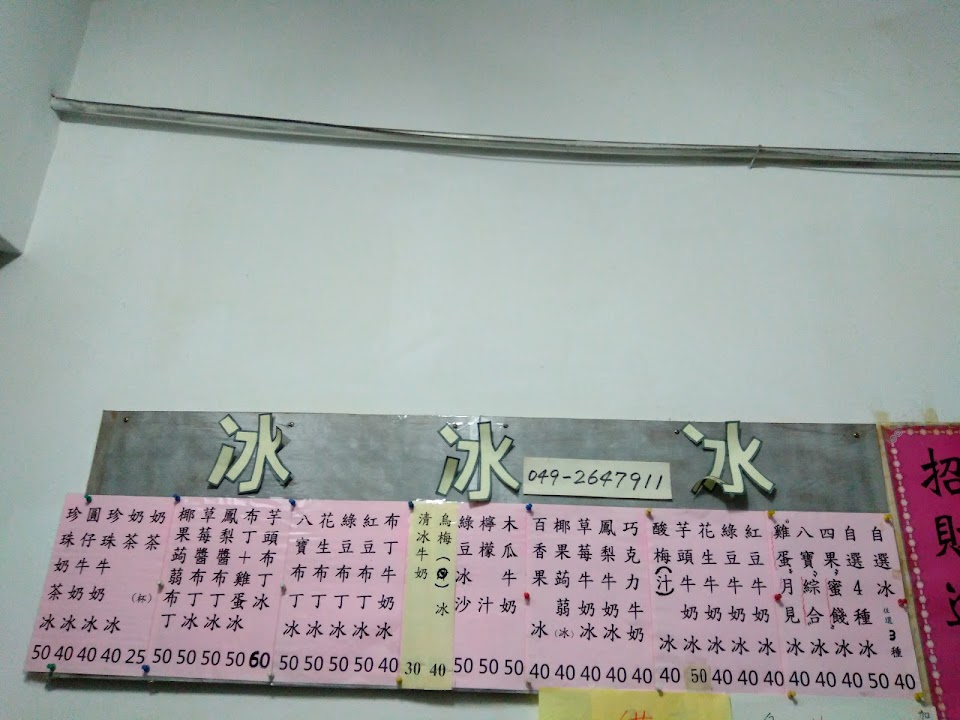 冰 冰 冰
049-2647911
自選冰任選3種 40
自選4種冰 50
四果蜜餞冰 40
八寶綜合冰 40
雞蛋月見冰 40
紅豆牛奶冰 40
綠豆牛奶冰 40
花生牛奶冰 40
芋頭牛奶冰 50
酸梅(汁)冰 40
巧克力牛奶 40
鳳梨牛奶冰 40
草莓牛奶冰 40
椰果蒟蒻(冰) 40
百香果冰 40
木瓜牛奶 50
檸檬汁 50
綠豆冰沙 50
烏梅冰 40
清冰牛奶 30
布丁牛奶冰 40
紅豆布丁冰 50
綠豆布丁冰 50
花生布丁冰 50
八寶布丁冰 50
芋頭布丁冰 60
布丁+雞蛋冰 50
鳳梨醬布丁冰 50
草莓醬布丁冰 50
椰果蒟蒻布丁 50
奶茶(杯) 25
奶茶冰 40
珍珠牛奶冰 40
圓仔牛奶冰 40
珍珠奶茶冰 50
招財進